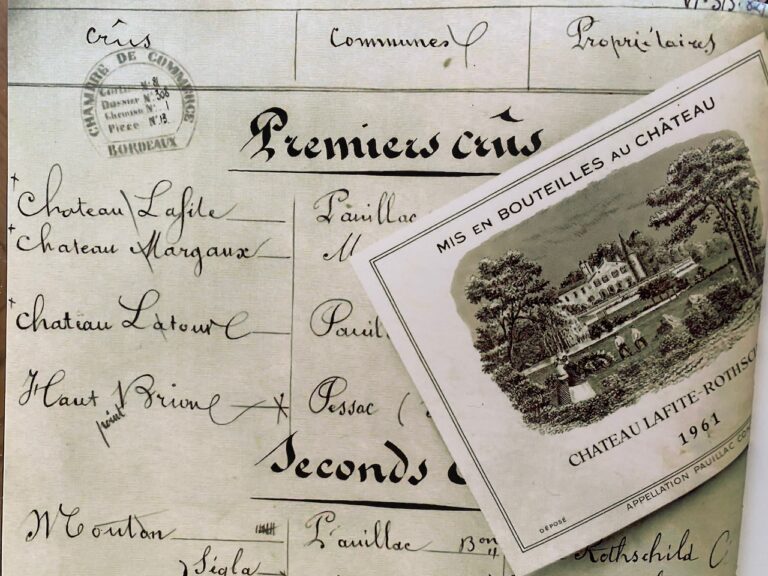 crûs Communes Propriétaires
CHAMBRE DE COMMERCE
Dossier N° 308
Pièce N° 13
BORDEAUX
Premiers crûs
Chateau Lafite Pauillac
Chateau Margaux M
Chateau Latour Pauil
Haut Brion Pessac (
point
Seconds C
Mouton Pauillac Bon Rothschild C
Ségla
MIS EN BOUTEILLES AU CHÂTEAU
CHATEAU LAFITE-ROTHSC
1961
DÉPOSÉ
APPELLATION PAUILLAC CON